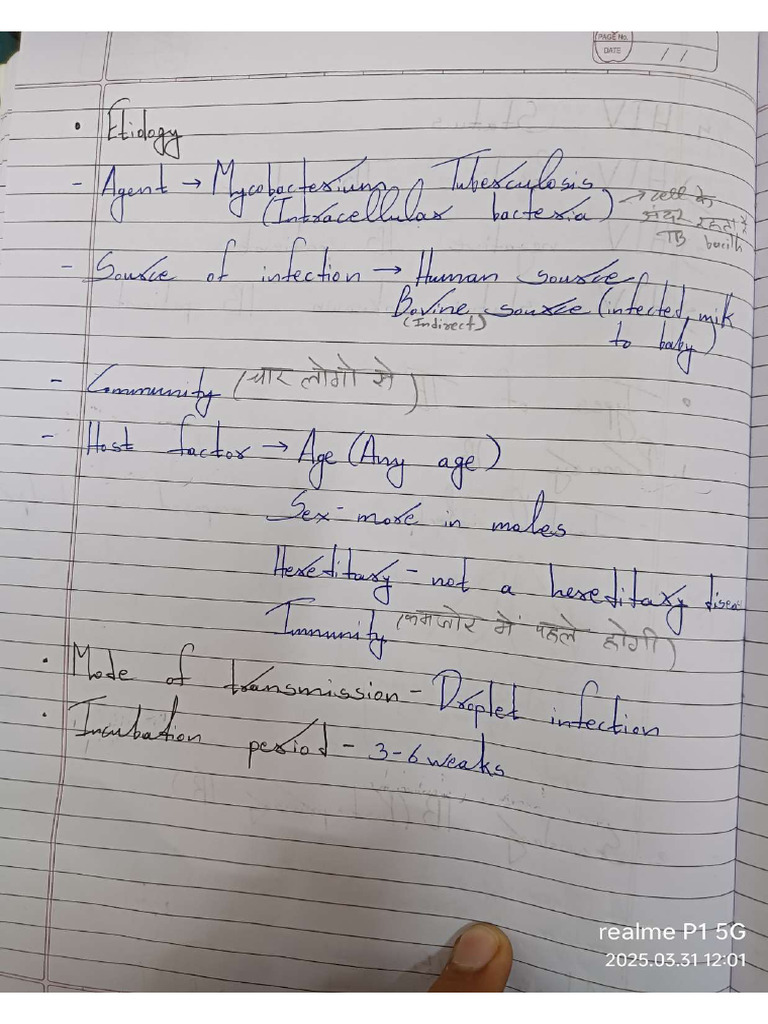 PAGE No.
DATE / /
• Etiology
- Agent → Mycobacterium Tuberculosis
(Intracellular bacteria) → cell के
अंदर रहता है
TB bacilli
- Source of infection → Human source
Bovine source (infected milk
(Indirect) to baby)
- Community (चार लोगो से)
- Host factor → Age (Any age)
Sex - more in males
Hereditary - not a hereditary
Immunity (कमजोर में पहले होगी)
• Mode of transmission - Droplet infection
• Incubation period - 3-6 weaks
realme P1 5G
2025.03.31 12:01